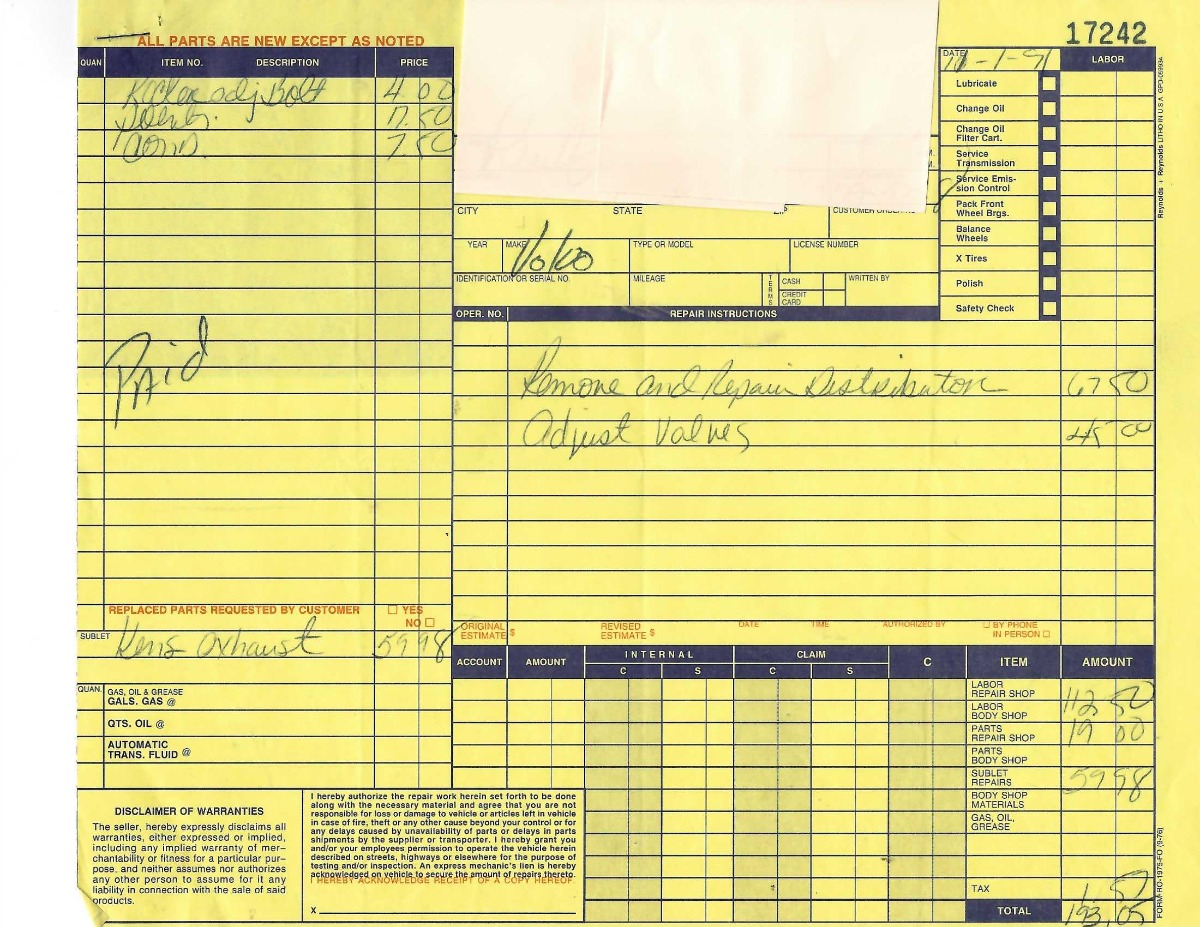 17242
ALL PARTS ARE NEW EXCEPT AS NOTED
QUAN ITEM NO. DESCRIPTION PRICE
adj Bolt 4 00
7.50
7.50
DATE -1-91 LABOR
Lubricate
Change Oil
Change Oil
Filter Cart.
Service
Transmission
Service Emis-
sion Control
Pack Front
Wheel Brgs.
Balance
Wheels
X Tires
Polish
Safety Check
CITY STATE ZIP CUSTOMER ORDER
YEAR MAKE Volvo TYPE OR MODEL LICENSE NUMBER
IDENTIFICATION OR SERIAL NO. MILEAGE TERMS CASH WRITTEN BY
CREDIT
CARD
OPER. NO. REPAIR INSTRUCTIONS
Remone and Repair Distributor 67 50
Adjust Valves 45 00
PAid
REPLACED PARTS REQUESTED BY CUSTOMER YES
NO
SUBLET Kens Exhaust 59 98
ORIGINAL
ESTIMATE $
REVISED
ESTIMATE $
DATE TIME AUTHORIZED BY BY PHONE
IN PERSON
ACCOUNT AMOUNT INTERNAL CLAIM C ITEM AMOUNT
C S C S
QUAN. GAS, OIL & GREASE
GALS. GAS @
QTS. OIL @
AUTOMATIC
TRANS. FLUID @
LABOR
REPAIR SHOP 112 50
LABOR
BODY SHOP
PARTS
REPAIR SHOP 19 00
PARTS
BODY SHOP
SUBLET
REPAIRS 59 98
BODY SHOP
MATERIALS
GAS, OIL,
GREASE
TAX 1.57
TOTAL 193.05
DISCLAIMER OF WARRANTIES
The seller, hereby expressly disclaims all
warranties, either expressed or implied,
including any implied warranty of mer-
chantability or fitness for a particular pur-
pose, and neither assumes nor authorizes
any other person to assume for it any
liability in connection with the sale of said
products.
I hereby authorize the repair work herein set forth to be done
along with the necessary material and agree that you are not
responsible for loss or damage to vehicle or articles left in vehicle
in case of fire, theft or any other cause beyond your control or for
any delays caused by unavailability of parts or delays in parts
shipments by the supplier or transporter. I hereby grant you
and/or your employees permission to operate the vehicle herein
described on streets, highways or elsewhere for the purpose of
testing and/or inspection. An express mechanic's lien is hereby
acknowledged on vehicle to secure the amount of repairs thereto.
I HEREBY ACKNOWLEDGE RECEIPT OF A COPY HEREOF.
X
Reynolds + Reynolds LITHO IN U.S.A.
FORM RO-1975-FO (9-76)